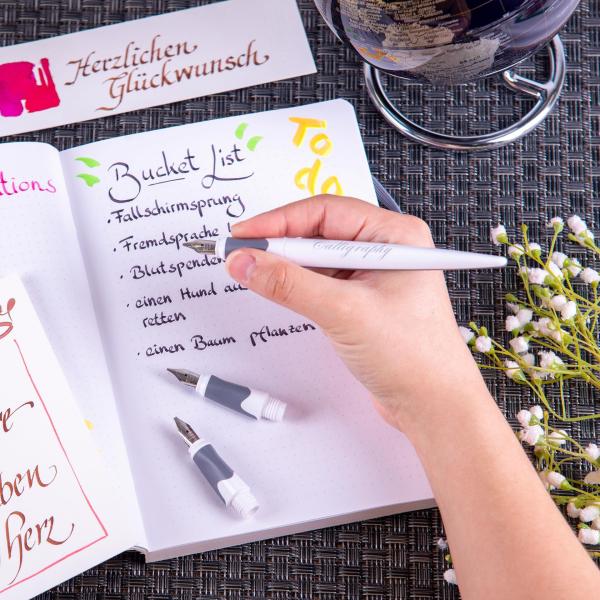 Herzlichen
Glückwunsch
Bucket List
To
do
·Fallschirmsprung
·Fremdsprache
·Blutspenden
·einen Hund
retten
·einen Baum pflanzen
Calligraphy
herz